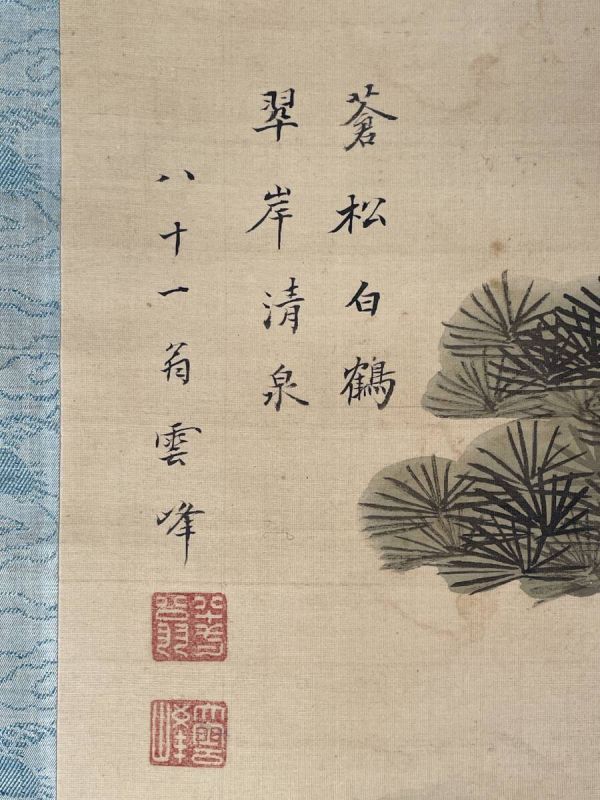 蒼松白鶴
翠岸清泉
八十一翁雲峰
雲峰